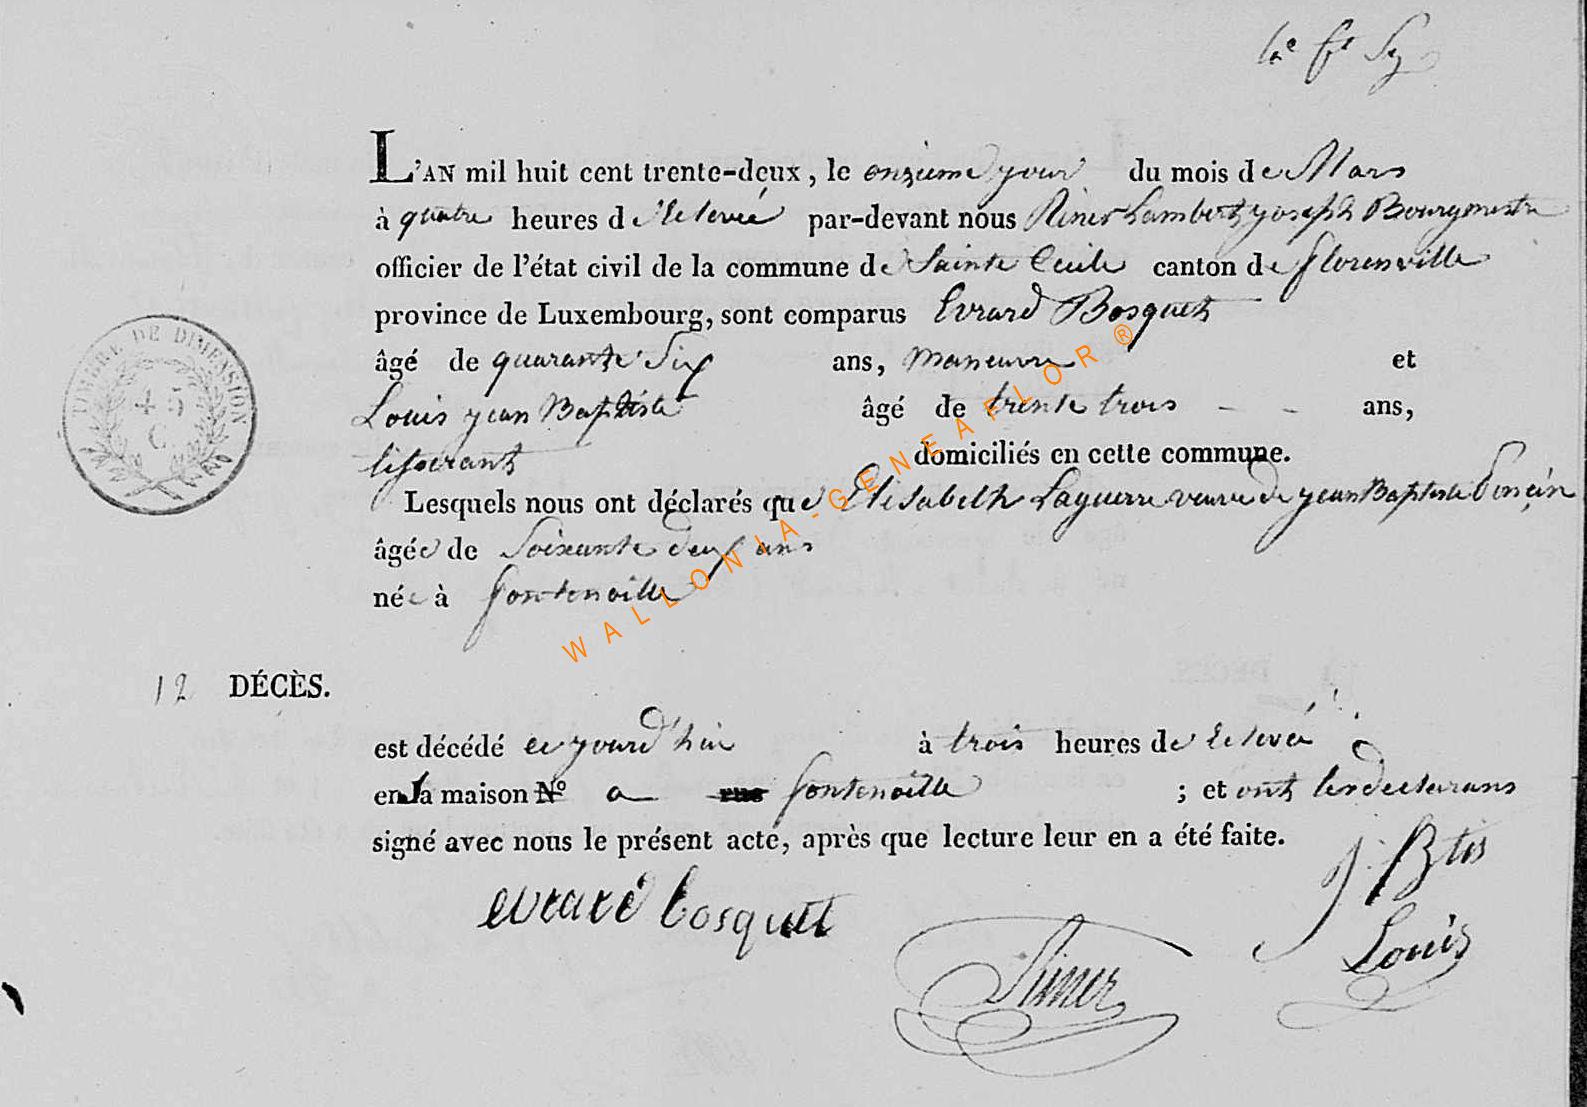 L'AN mil huit cent trente-deux, le onzieme jour du mois de Mars
à quatre heures de relevée par-devant nous Riner Lambert joseph Bourgmestre
officier de l'état civil de la commune de Sainte Cecile canton de florenville
province de Luxembourg, sont comparus Evrard Bosquet
âgé de quarante Six ans, maneuvre et
Louis jean Baptiste âgé de trente trois - - ans,
tisserant domiciliés en cette commune.
Lesquels nous ont déclarés que Elisabelh Laguerre veuve de jean Baptiste Poncin
âgée de Soixante deux ans
née à fontenoille
12 DÉCÈS.
est décédé ce jourd'hui à trois heures de relevée
en la maison N° a rue fontenoille ; et ont les declarans
signé avec nous le présent acte, après que lecture leur en a été faite.
evrard bosquet
J: Btis
Louis
Riner
TIMBRE DE DIMENSION
45
C
WALLONIA-GENEAFLOR®